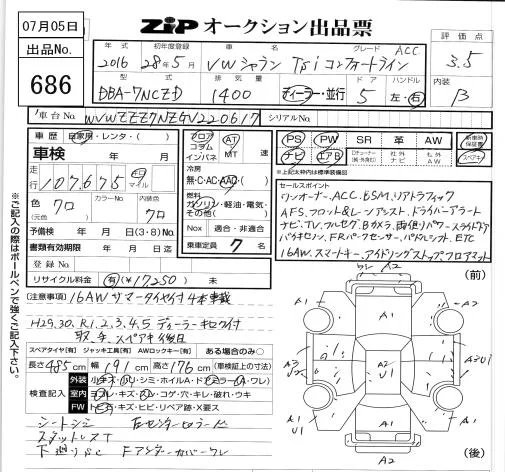 07月05日
出品No.
686
ZIP オークション出品票
評価点
3.5
内装
B
年式 初年度登録 車名 グレード
2016 28年5月 VWシャラン Tsiコンフォートライン ACC
型式 排気量 ドア ハンドル
DBA-7NCZD 1400 ディーラー・並行 5 左・右
車台No. WVWZZZ7NZGV220617 シリアルNo.
車歴 自家用・レンタ・( )
車検 年 月
走行 107,675 キロ マイル
色 クロ カラーNo. 内装色 クロ
(元色 )
予備検 年 月 日 (3・8) No.
書類有効期限 年 月 日
登録No.
リサイクル料金 有(¥17250 )
フロア コラム インパネ AT MT 速
冷房
無・C・AC・AAC・( )
燃料
ガソリン・軽油・電気・その他( )
Nox 適合・非適合
乗車定員 7 名
PS PW SR 革 AW 新車時保証書
ナビ エアB 社外ナビ 社外AW スペアキー
※上記太枠内は標準装備品
セールスポイント
ワンオーナー、ACC、BSM、リアトラフィック
AFS、フロント&レーンアシスト、ドライバーアラート
ナビ、TV、フルセグ、Bカメラ、両側パワースライドドア
バイキセノン、FRパークセンサー、パドルシフト、ETC
16AW、スマートキー、アイドリングストップ、フロアマット
[注意事項] 16AWサマータイヤ付4本車載
H29.30.R1.2.3.4.5 ディーラーキロク付
取、手、スペアキ後日
スペアタイヤ[有] ジャッキ工具[有] AWロックキー[有] ある場合のみ○
長さ485cm 幅191cm 高さ176cm (車検証上の寸法)
検査記入
外装
室内
FW トビ石・キズ・ヒビ・リペア跡・X要ス
シートシミ
スタットレスT
下廻りサビ Fアンダーカバーワレ
※ご記入の際はボールペンで強くご記入下さい。
(前)
A2
A1
A1
A2
U1
A1
A2
A1
(後)